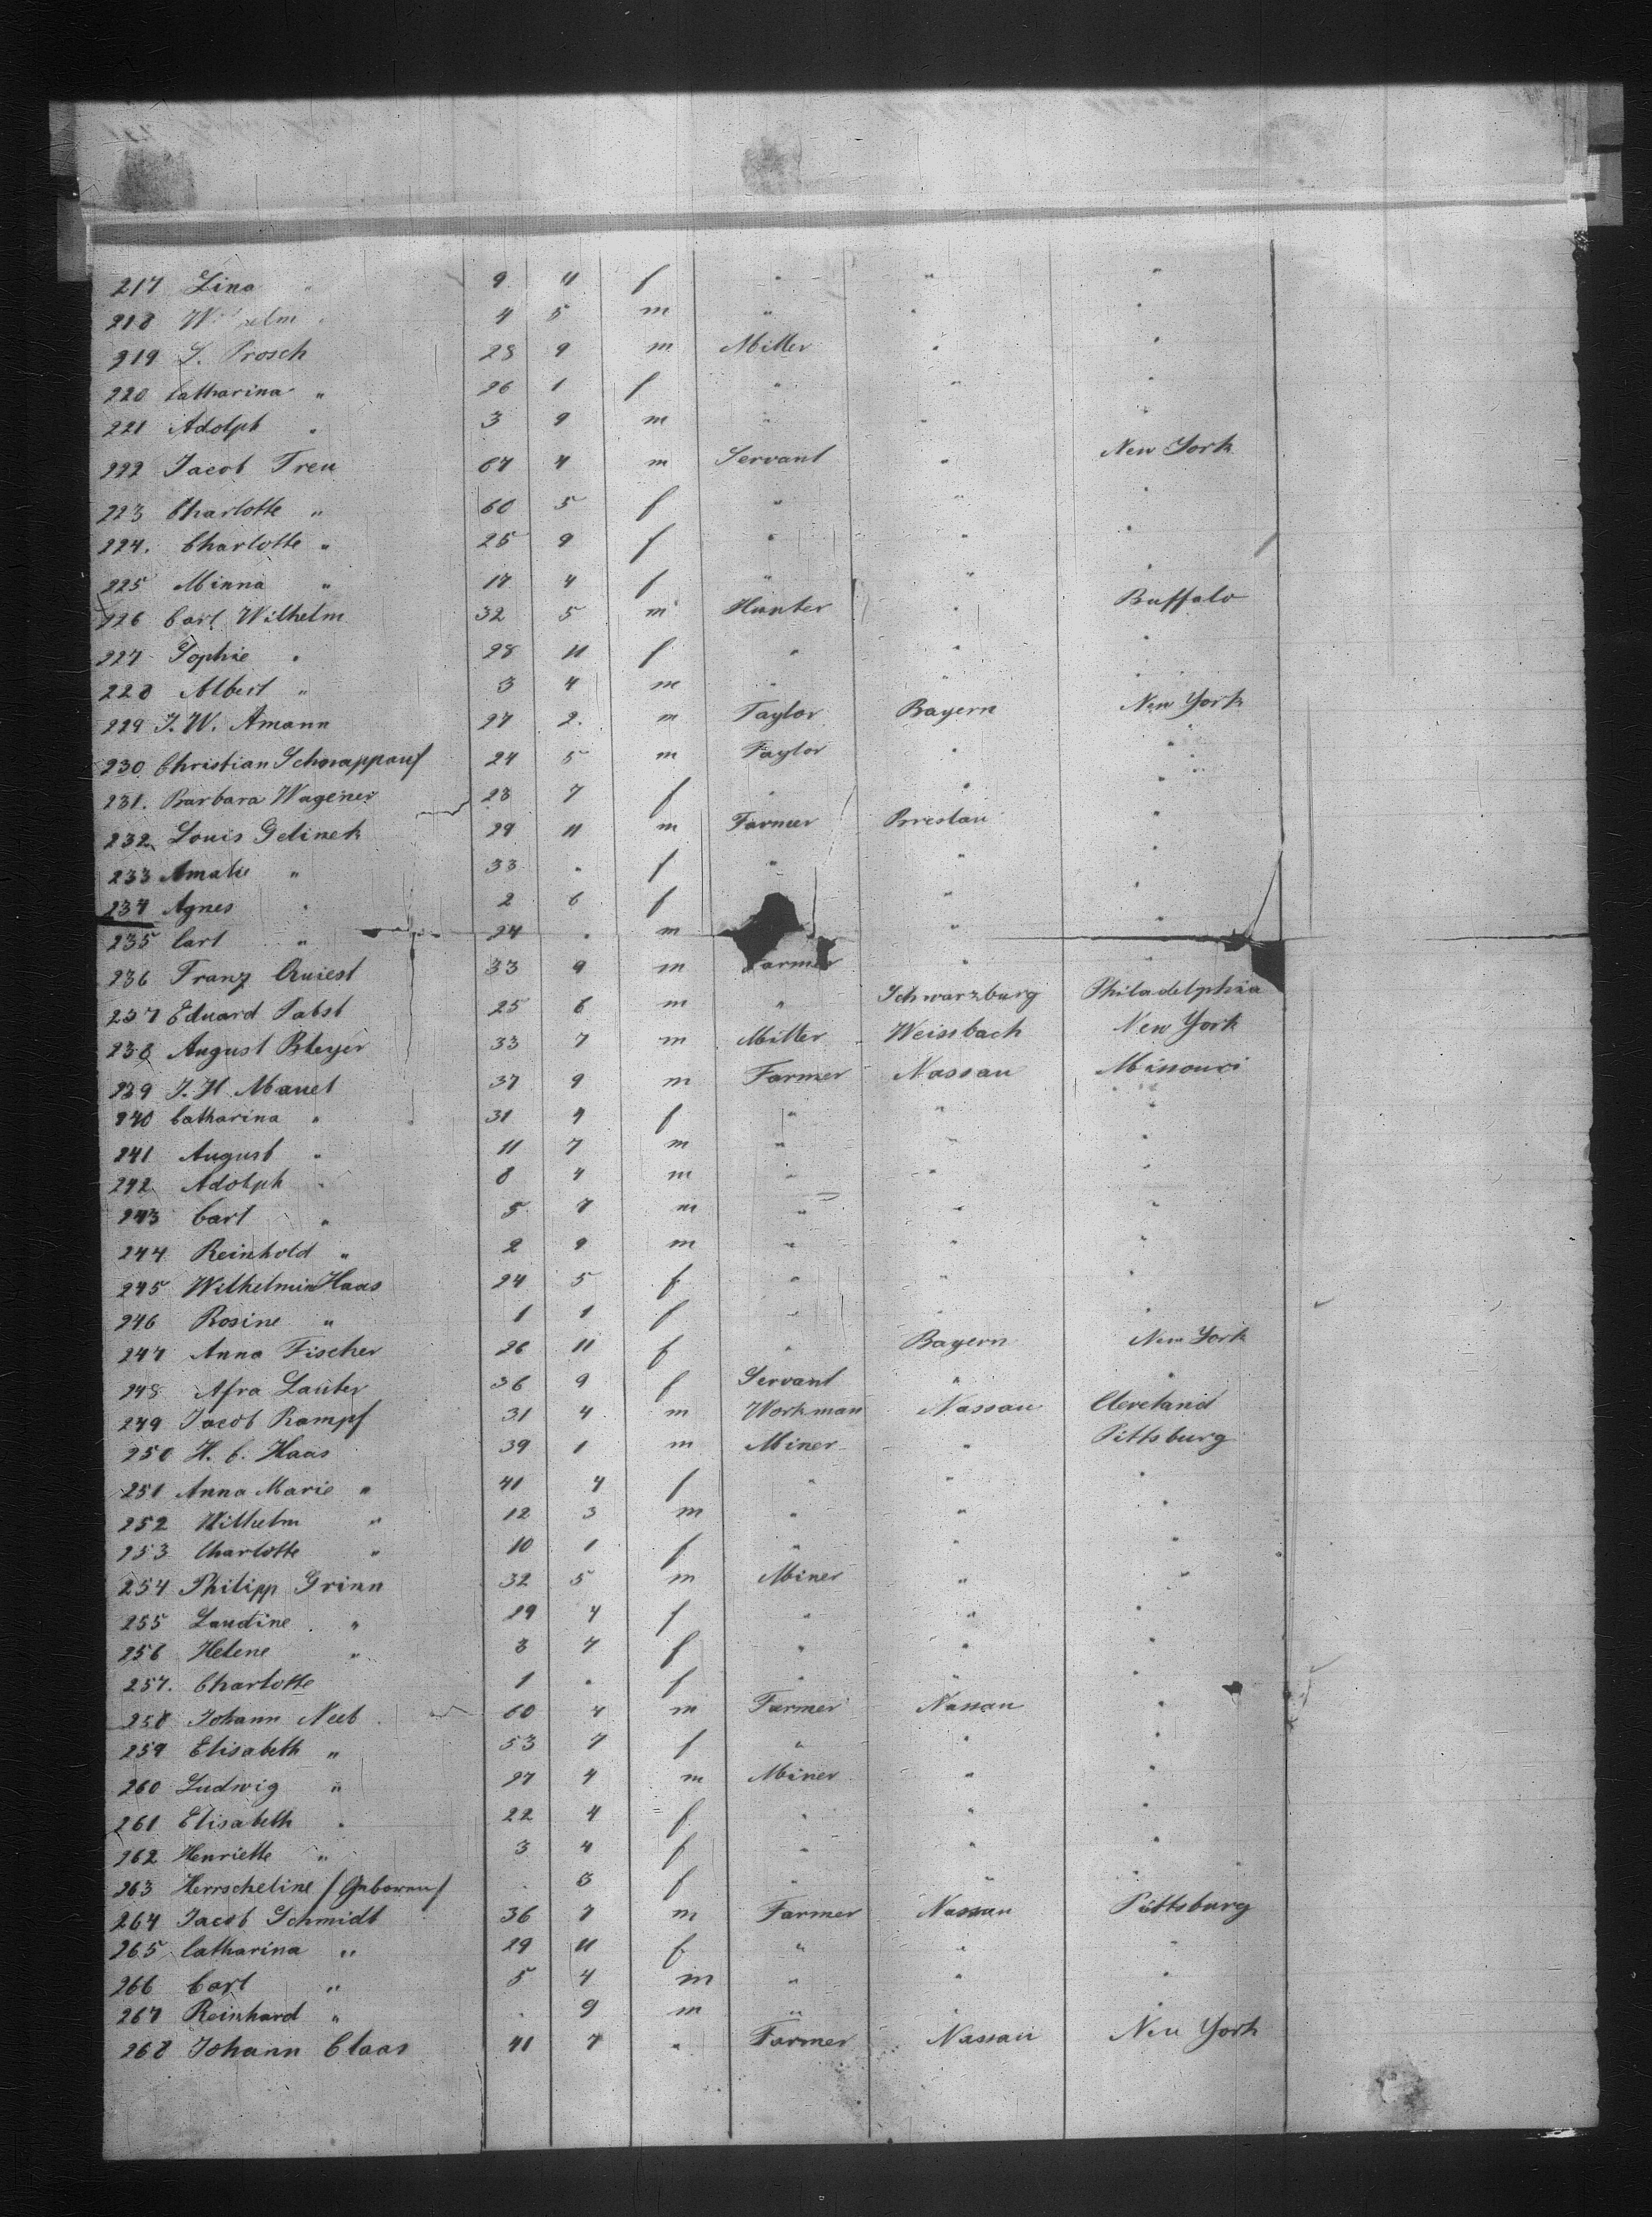 217 Lina " 9 11 f " " "
218 Wilhelm " 4 5 m " " "
219 S. Prosch 28 9 m Miller " "
220 Catharina " 26 1 f " " "
221 Adolph " 3 9 m " " "
222 Jacob Treu 67 4 m Servant " New York
223 Charlotte " 60 5 f " " "
224. Charlotte " 25 9 f " " "
225 Minna " 17 4 f " " "
226 Carl Wilhelm 32 5 m Hunter " Buffalo
227 Sophie " 28 11 f " " "
228 Albert " 3 4 m " " "
229 J. W. Amann 27 2. m Taylor Bayern New York
230 Christian Schnappauf 24 5 m Taylor " "
231. Barbara Wagener 23 7 f " " "
232 Louis Gelinek 29 11 m Farmer Breslau "
233 Amalie " 33 " f " " "
234 Agnes " 2 6 f " "
235 Carl " 24 " m " "
236 Franz Quiest 33 9 m Farmer " "
237 Eduard Pabst 25 6 m " Schwarzburg Philadelphia
238 August Bleyer 33 7 m Miller Weissbach New York
239 J. H. Manet 37 9 m Farmer Nassau Missouri
240 Catharina " 31 4 f " " "
241 August " 11 7 m " " "
242 Adolph " 8 4 m " " "
243 Carl " 5 7 m " " "
244 Reinhold " 2 9 m " " "
245 Wilhelmin Haas 24 5 f " " "
246 Rosine " 1 1 f " " "
247 Anna Fischer 26 11 f " Bayern New York
248 Afra Lauter 36 9 f Servant " "
249 Jacob Rampf 31 4 m Workman Nassau Cleveland
250 H. C. Haas 39 1 m Miner " Pittsburg
251 Anna Marie " 41 4 f " " "
252 Wilhelm " 12 3 m " " "
253 Charlotte " 10 1 f " " "
254 Philipp Grinn 32 5 m Miner " "
255 Laudine " 29 4 f " " "
256 Helene " 3 7 f " " "
257. Charlotte 1 " f " " "
258 Johann Neeb 60 4 m Farmer Nassau "
259 Elisabeth " 53 7 f " " "
260 Ludwig " 27 4 m Miner " "
261 Elisabeth " 22 4 f " " "
262 Henriette " 3 4 f " " "
263 Herrscheline / Geboren / . 3 f " " "
264 Jacob Schmidt 36 7 m Farmer Nassau Pittsburg
265 Catharina " 29 11 f " " "
266 Carl " 5 4 m " " "
267 Reinhard " . 9 m " " "
268 Johann Claas 41 7 " Farmer Nassau New York